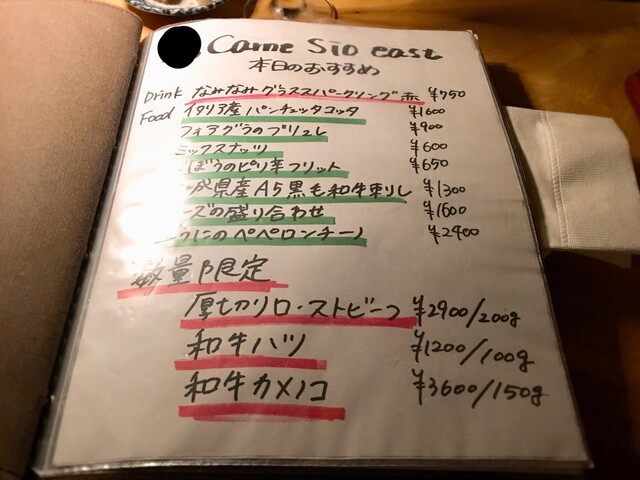 Came Sio east
本日のおすすめ
Drink なみなみグラススパークリング 赤 ¥750
Food イタリア産 パンチェッタコッタ ¥1600
フォアグラのブリュレ ¥900
ミックスナッツ ¥600
ごぼうのピリ辛フリット ¥650
県産A5黒毛和牛炙りし ¥1300
ーズの盛り合わせ ¥1600
うにのペペロンチーノ ¥2400
数量限定
厚切りローストビーフ ¥2900/200g
和牛ハツ ¥1200/100g
和牛カメノコ ¥3600/150g